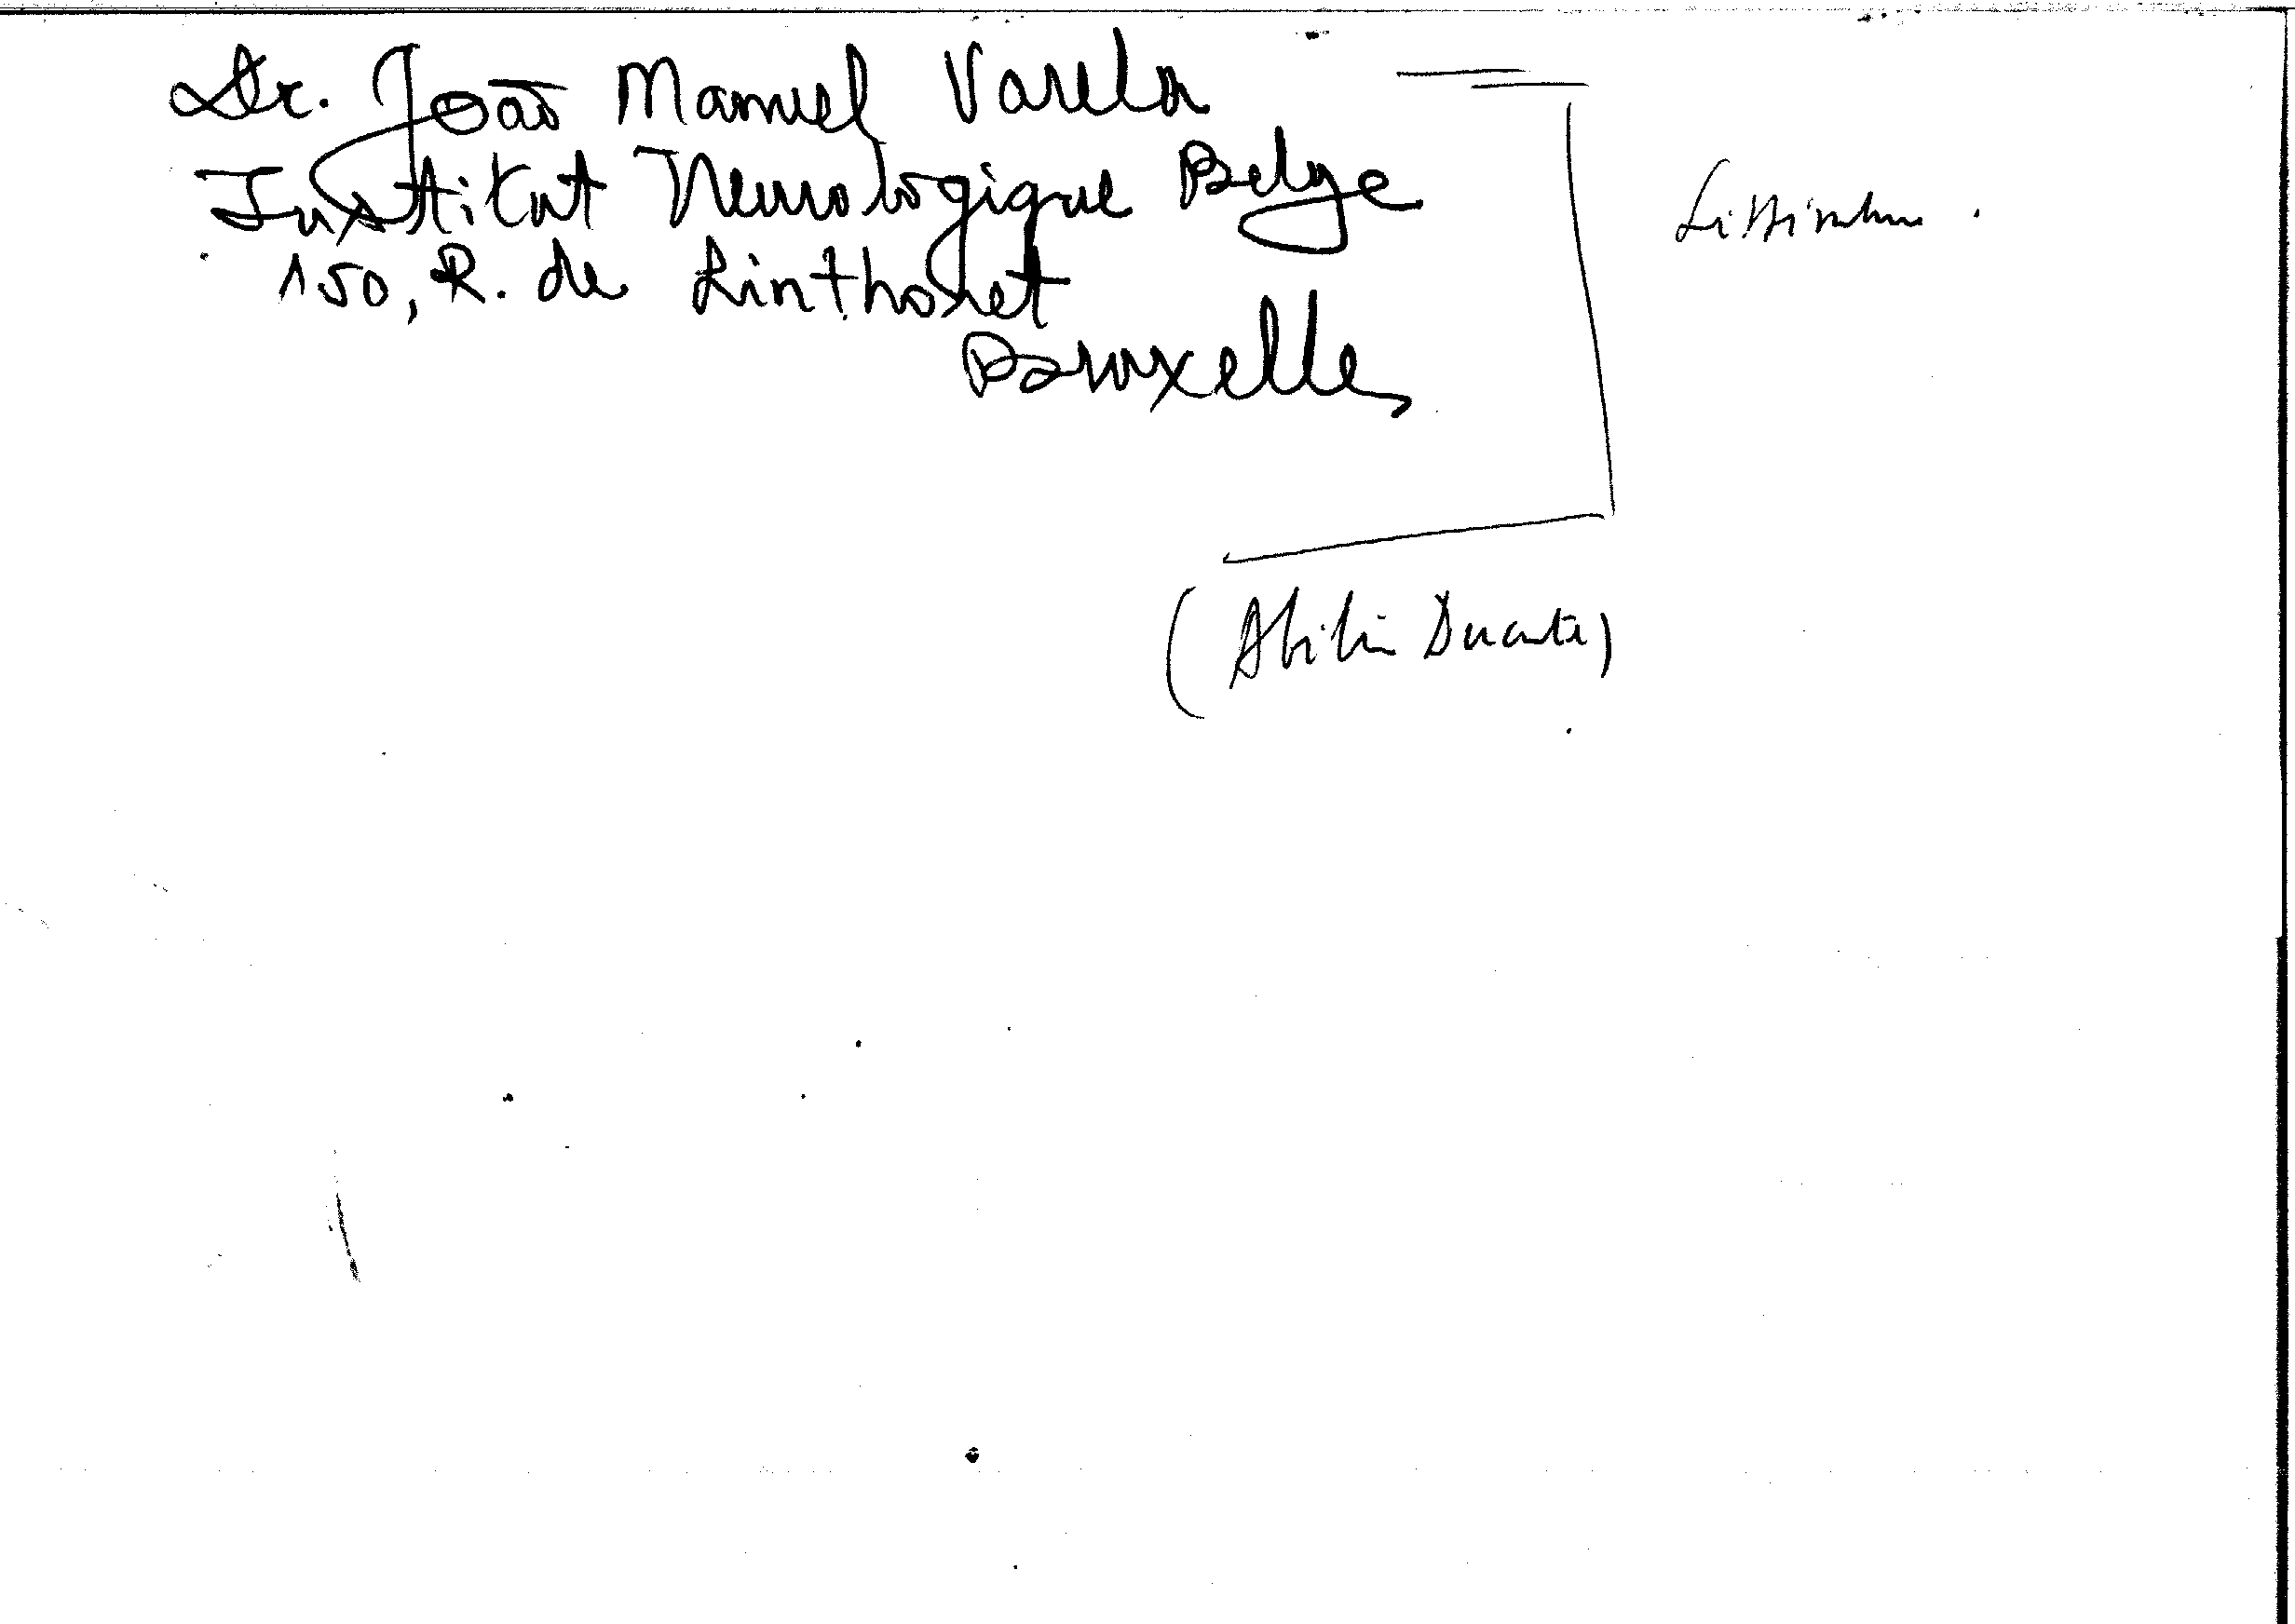 Dr. João Manuel Varela
Institut Neurologique Belge
150, R. de Linthout
Bruxelles
(Abílio Duarte)